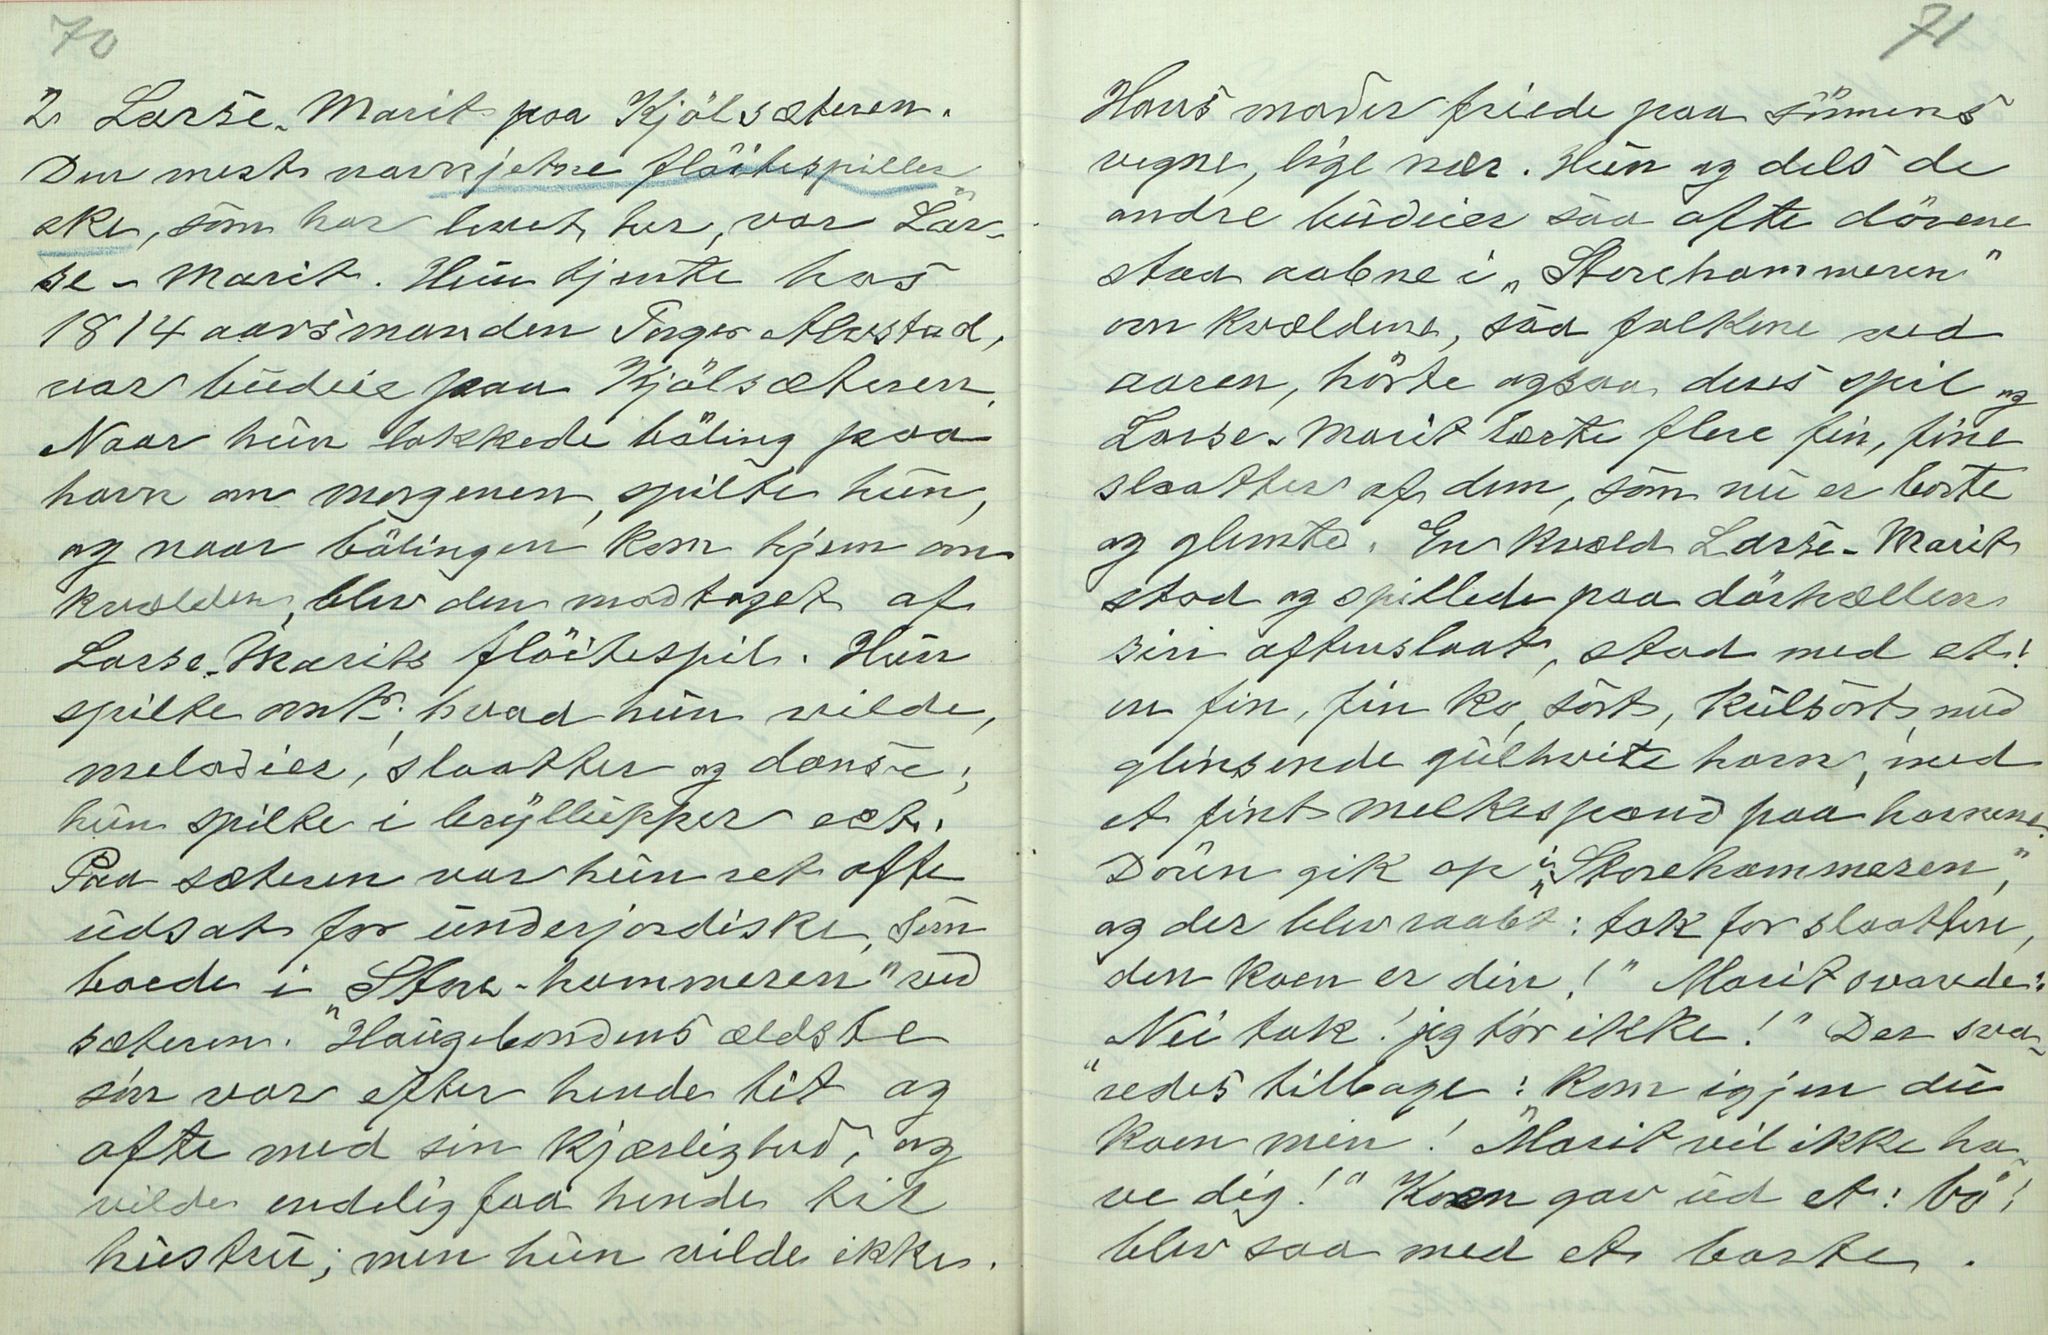 70
2. Larse-Marit paa Kjölsæteren.
Den mest navngjetne flöitespiller
ske, som har levet her, var Lar-
se-Marit. Hun tjente hos
1814 aarsmanden Inger Alvstad,
var budeie paa Kjölsæteren.
Naar hun lokkede böling paa
havn om morgenen, spilte hun,
og naar bölingen kom hjem om
kvælden, blev den modtaget af
Larse-Marits flöitespil. Hun
spilte omtr. hvad hun vilde,
melodier, slaatter og danse;
hun spilte i bryllupper ect.
Paa sæteren var hun ret ofte
udsat for underjordiske, som
boede i "Store-hammeren" ved
sæteren. "Haugebondens ældste
sön var efter hende tit og
ofte med sin kjærlighed, og
vilde endelig faa hende til
hustru; men hun vilde ikke.
71
Hans moder friede paa sönnens
vegne, lige nær. Hun og dels de
andre budeier saa ofte dörene
stod aabne i "Storehammeren"
om kvældene, saa folkene ved
aaren, hörte ogsaa deres spil og
Larse-Marit lærte flere fin, fine
slaatter af dem, som nu er borte
og glemte. En kvæld Larse-Marit
stod og spillede paa dörhællen
sin aftenslaat, stod med et!
en fin, fin ko, sort, kulsort med
glinsende gulhvite horn, med
et fint melkespand paa hornene.
Dören gik op i "Storehammeren",
og der blev raabt: tak for slaatten,
den koen er din!" Marit svarede:
"Nei tak! jeg tör ikke!" Der sva-
redes tilbage: "Kom igjen du
koen min! Marit vil ikke ha-
ve dig!" Koen gav ud et: bö!
blev saa med et borte.